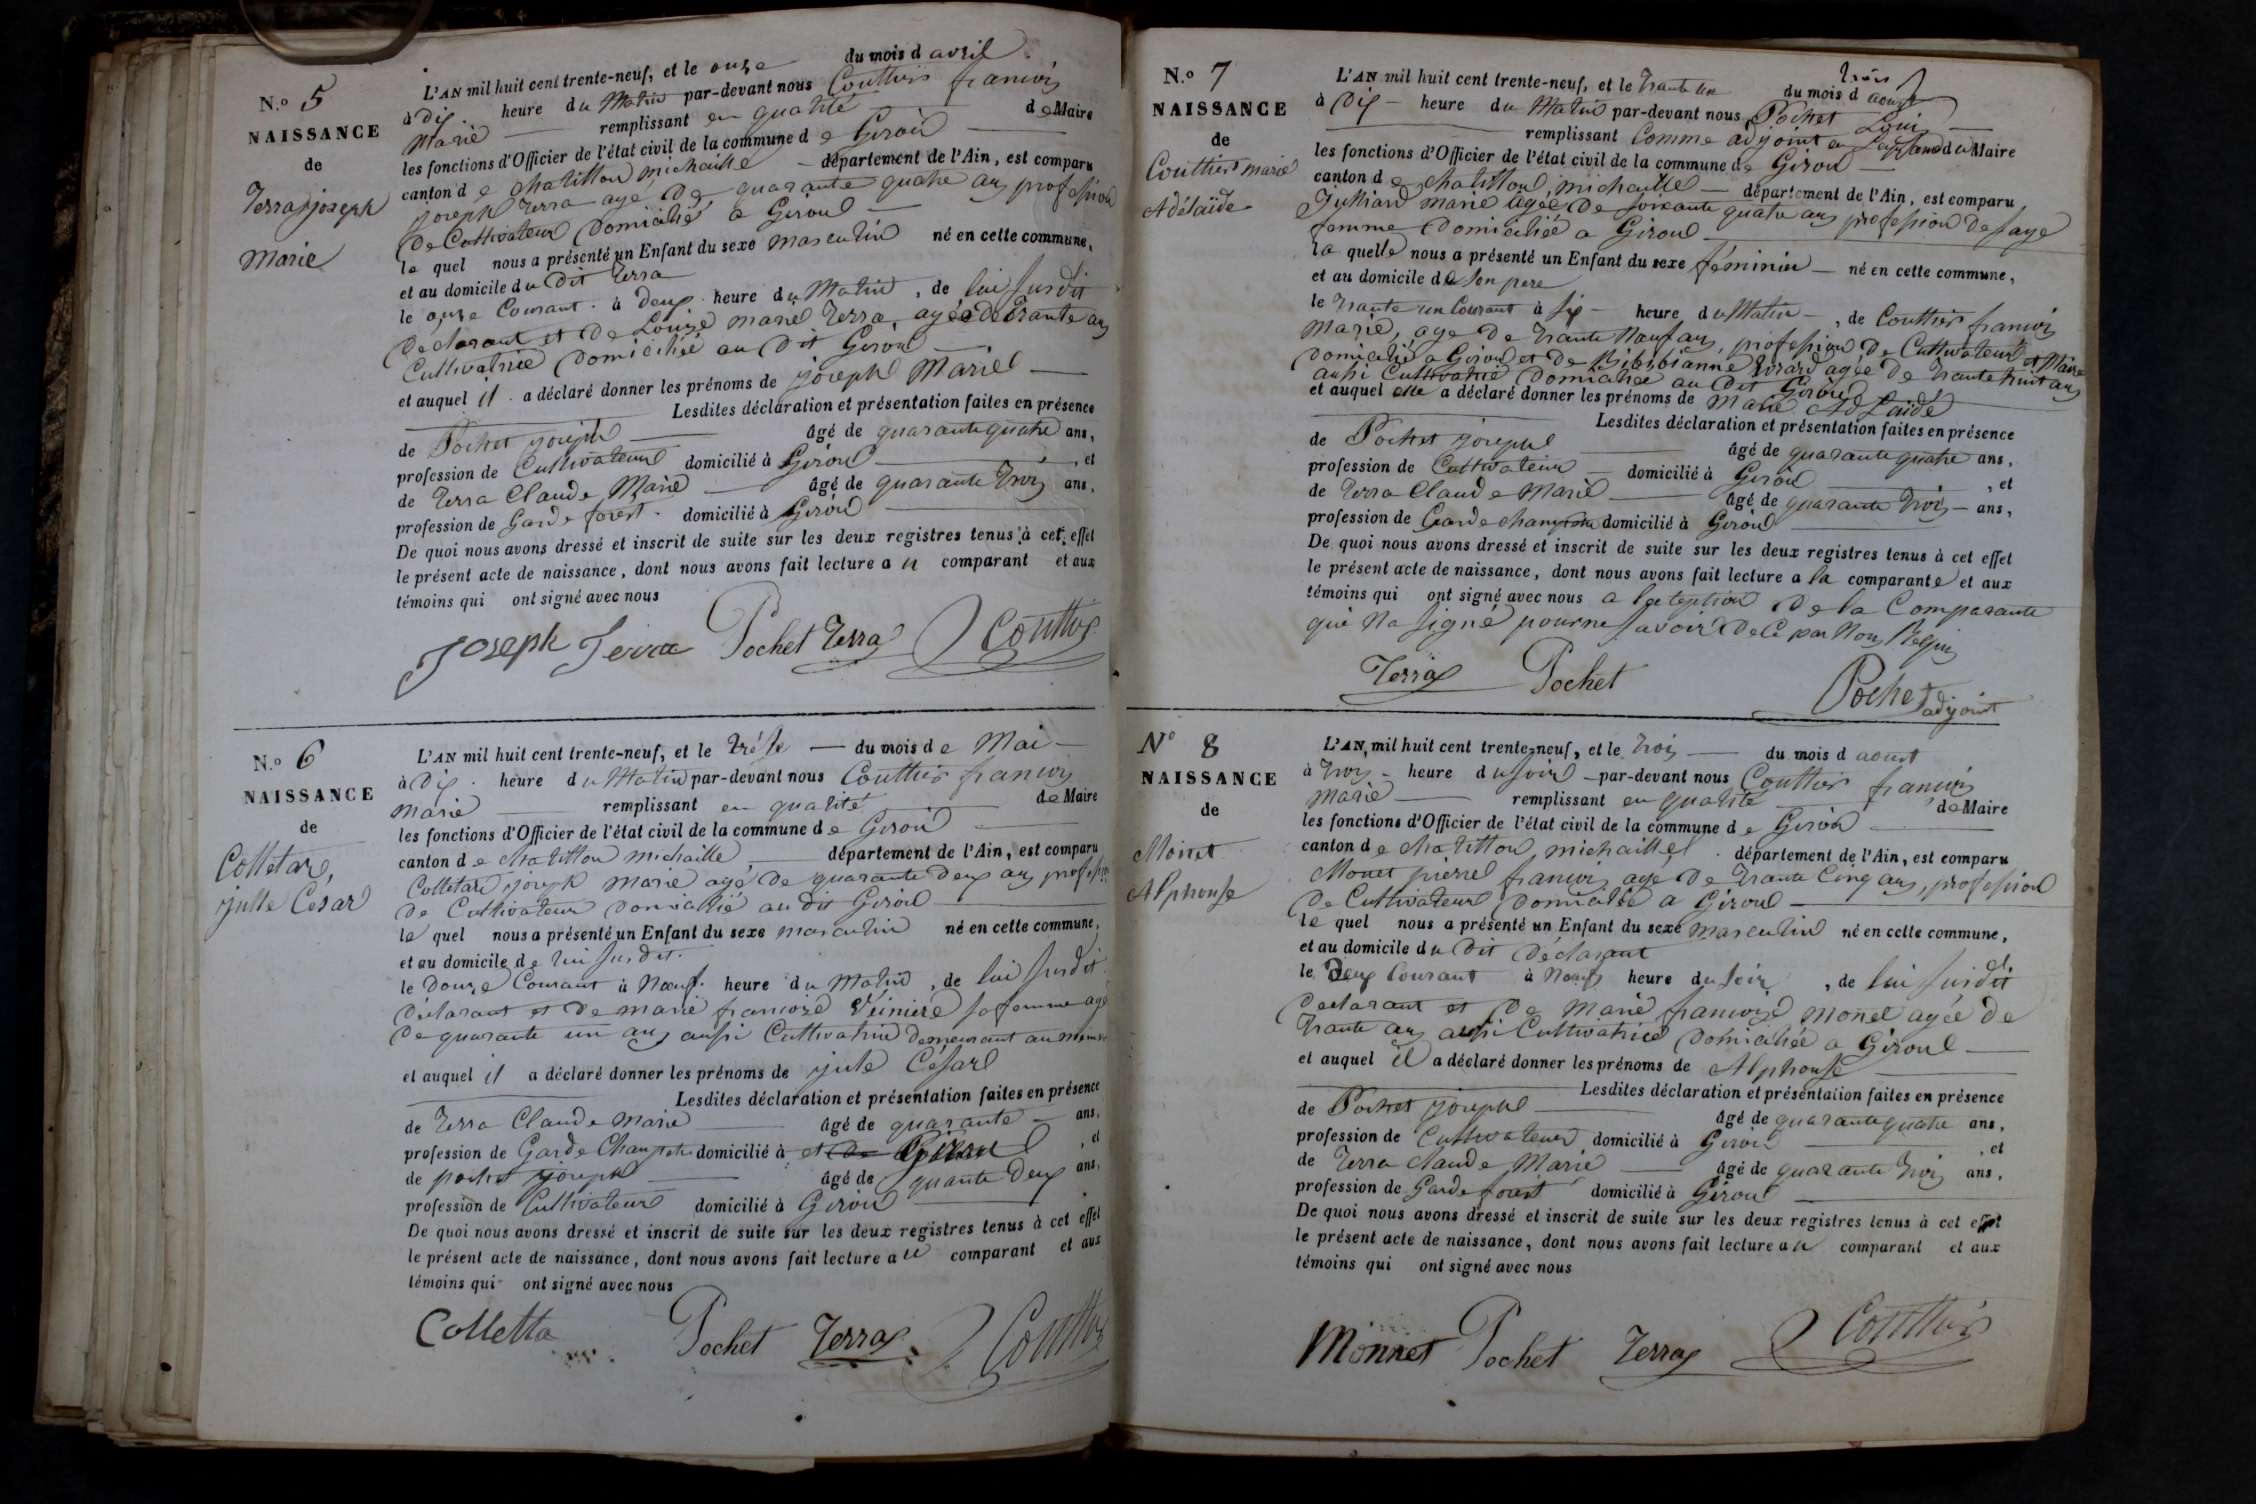 N.o 5
NAISSANCE
de
Terra joseph
Marie
L'AN mil huit cent trente-neuf, et le onze du mois d avril
à dix heure du Matin par-devant nous Couttier francois
Marie remplissant en qualité de Maire
les fonctions d'Officier de l'état civil de la commune de Giron
canton de chatillon michaille département de l'Ain, est comparu
joseph Terra agé de quarante quatre ans profession
De Cultivateur Domicilié a Giron
le quel nous a présenté un Enfant du sexe masculin né en cette commune,
et au domicile du Dit Terra
le onze Courant à deux heure du Matin, de lui Susdit
declarant et de Louise marie Terra, agée de Trante ans
Cultivatrice Domiciliée au Dit Giron
et auquel il a déclaré donner les prénoms de joseph Marie
Lesdites déclaration et présentation faites en présence
de Pochet joseph âgé de quarante quatre ans,
profession de Cultivateur domicilié à Giron, et
de Terra Claude Marie âgé de quarante Trois ans,
profession de Garde forest domicilié à Giron
De quoi nous avons dressé et inscrit de suite sur les deux registres tenus à cet effet
le présent acte de naissance, dont nous avons fait lecture au comparant et aux
témoins qui ont signé avec nous
Joseph Terra Pochet Terra Couttier
N.o 6
NAISSANCE
de
Colletaz,
jule César
L'AN mil huit cent trente-neuf, et le Trése du mois de Mai
à dix heure du Matin par-devant nous Couttier francois
Marie remplissant en qualité de Maire
les fonctions d'Officier de l'état civil de la commune de Giron
canton de chatillon michaille département de l'Ain, est comparu
Colletaz joseph Marie agé de quarante deux ans profession
de Cultivateur domicilié au dit Giron
le quel nous a présenté un Enfant du sexe masculin né en cette commune,
et au domicile de lui susdit.
le Douze Courant à Neuf heure du Matin, de lui susdit
déclarant et de marie francoise sa femme agé
de quarante un ans aussi Cultivatrice demeurant au même
et auquel il a déclaré donner les prénoms de jule César
Lesdites déclaration et présentation faites en présence
de Terra Claude Marie âgé de quarante ans,
profession de Garde Champetre domicilié à et de Giron, et
de pochet joseph âgé de quante deux ans,
profession de Cultivateur domicilié à Giron
De quoi nous avons dressé et inscrit de suite sur les deux registres tenus à cet effet
le présent acte de naissance, dont nous avons fait lecture au comparant et aux
témoins qui ont signé avec nous
Colletta Pochet Terra Couttier
N.o 7
NAISSANCE
de
Couttier marie
Adélaïde
L'AN mil huit cent trente-neuf, et le Trante un du mois d aoust
à Dix heure du Matin par-devant nous Pochet Loui
remplissant Comme adjoint en du Maire
les fonctions d'Officier de l'état civil de la commune de Giron
canton de chatillon michaille département de l'Ain, est comparu
Julliard marie agée de soixante quatre ans profession de sage
femme Domiciliée a Giron
la quelle nous a présenté un Enfant du sexe féminin né en cette commune,
et au domicile de son pere
le Trante un Courant à Six heure du Matin, de Couttier francois
Marie, age de Trante Neuf ans, profession de Cultivateur et Maire
Domicilié a Giron et de agée de Trante huit ans
aussi Cultivatrice Domiciliée au Dit Giron
et auquel elle a déclaré donner les prénoms de Marie Adélaïde
Lesdites déclaration et présentation faites en présence
de Pochet joseph âgé de quarante quatre ans,
profession de Cultivateur domicilié à Giron, et
de Terra Claude Marie âgé de quarante Trois ans,
profession de Garde champetre domicilié à Giron
De quoi nous avons dressé et inscrit de suite sur les deux registres tenus à cet effet
le présent acte de naissance, dont nous avons fait lecture a la comparante et aux
témoins qui ont signé avec nous a De la Comparante
qui Na signé pour ne Savoir De Ce par Nous Requis
Terra Pochet Pochet adjoint
N° 8
NAISSANCE
de
Monet
Alphonse
L'AN mil huit cent trente-neuf, et le Trois du mois d aoust
à Trois heure du soir par-devant nous Couttier francois
Marie remplissant en qualité de Maire
les fonctions d'Officier de l'état civil de la commune de Giron
canton de chatillon michaille département de l'Ain, est comparu
Monet pierre francois agé de Trante Cinq ans, profession
De Cultivateur Domicilié a Giron
le quel nous a présenté un Enfant du sexe masculin né en cette commune,
et au domicile du Dit Déclarant
le Deux Courant à Neuf heure du soir, de lui susdit
declarant et De Marie francoise Monet agée de
Trante ans aussi Cultivatrice Domiciliée a Giron
et auquel il a déclaré donner les prénoms de Alphonse
Lesdites déclaration et présentation faites en présence
de Pochet joseph âgé de quarante quatre ans,
profession de Cultivateur domicilié à Giron, et
de Terra claude Marie âgé de quarante Trois ans,
profession de Garde forest domicilié à Giron
De quoi nous avons dressé et inscrit de suite sur les deux registres tenus à cet effet
le présent acte de naissance, dont nous avons fait lecture au comparant et aux
témoins qui ont signé avec nous
Monnet Pochet Terra Couttier